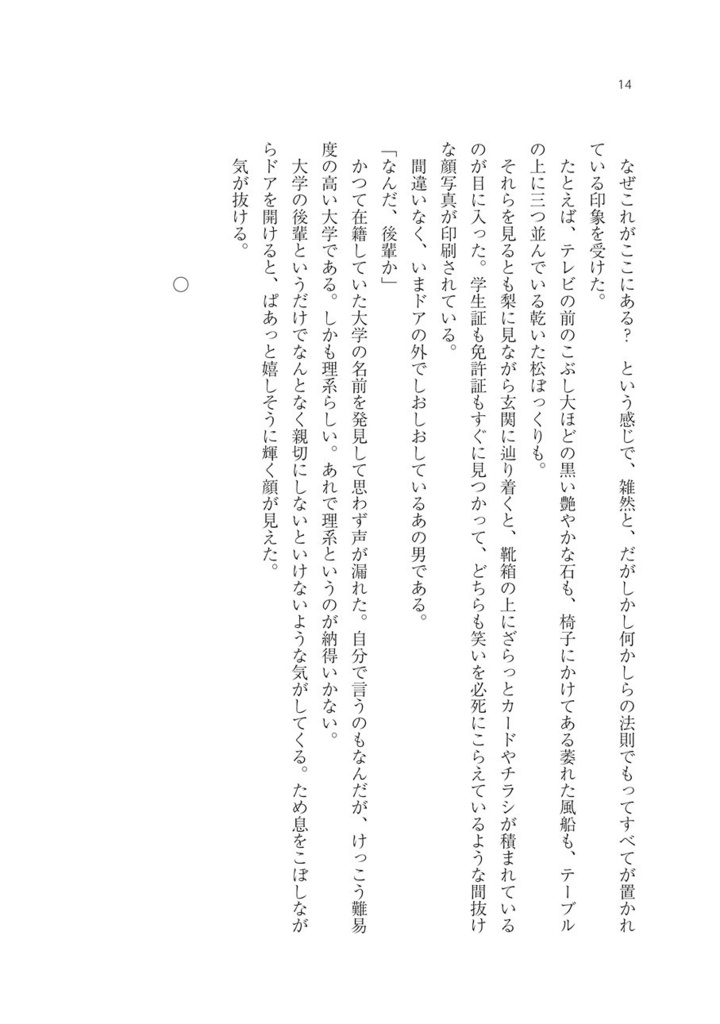 14
　なぜこれがここにある？　という感じで、雑然と、だがしかし何かしらの法則でもってすべてが置かれ
ている印象を受けた。
　たとえば、テレビの前のこぶし大ほどの黒い艶やかな石も、椅子にかけてある萎れた風船も、テーブル
の上に三つ並んでいる乾いた松ぼっくりも。
　それらを見るとも梨に見ながら玄関に辿り着くと、靴箱の上にざらっとカードやチラシが積まれている
のが目に入った。学生証も免許証もすぐに見つかって、どちらも笑いを必死にこらえているような間抜け
な顔写真が印刷されている。
　間違いなく、いまドアの外でしおしおしているあの男である。
「なんだ、後輩か」
　かつて在籍していた大学の名前を発見して思わず声が漏れた。自分で言うのもなんだが、けっこう難易
度の高い大学である。しかも理系らしい。あれで理系というのが納得いかない。
　大学の後輩というだけでなんとなく親切にしないといけないような気がしてくる。ため息をこぼしなが
らドアを開けると、ぱあっと嬉しそうに輝く顔が見えた。
　気が抜ける。
○